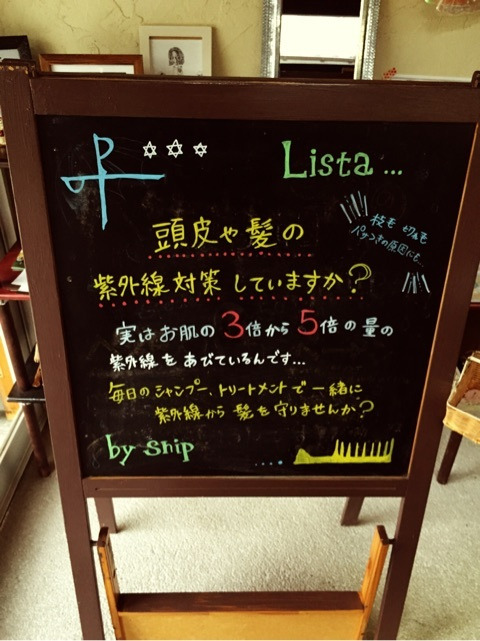 Lista...
枝毛 切毛
パサつきの原因にも...
頭皮や髪の
紫外線対策していますか?
実はお肌の3倍から5倍の量の
紫外線をあびているんです...
毎日のシャンプー、トリートメントで一緒に
紫外線から髪を守りませんか?
by Snip